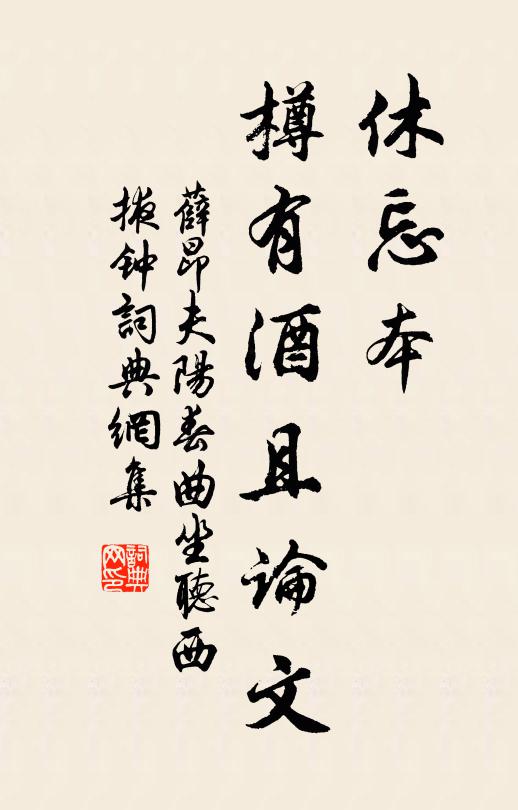 休忘本
樽有酒且論文
薛昂夫陽春曲坐聽西
掖钟詞典網集
詞典
网印